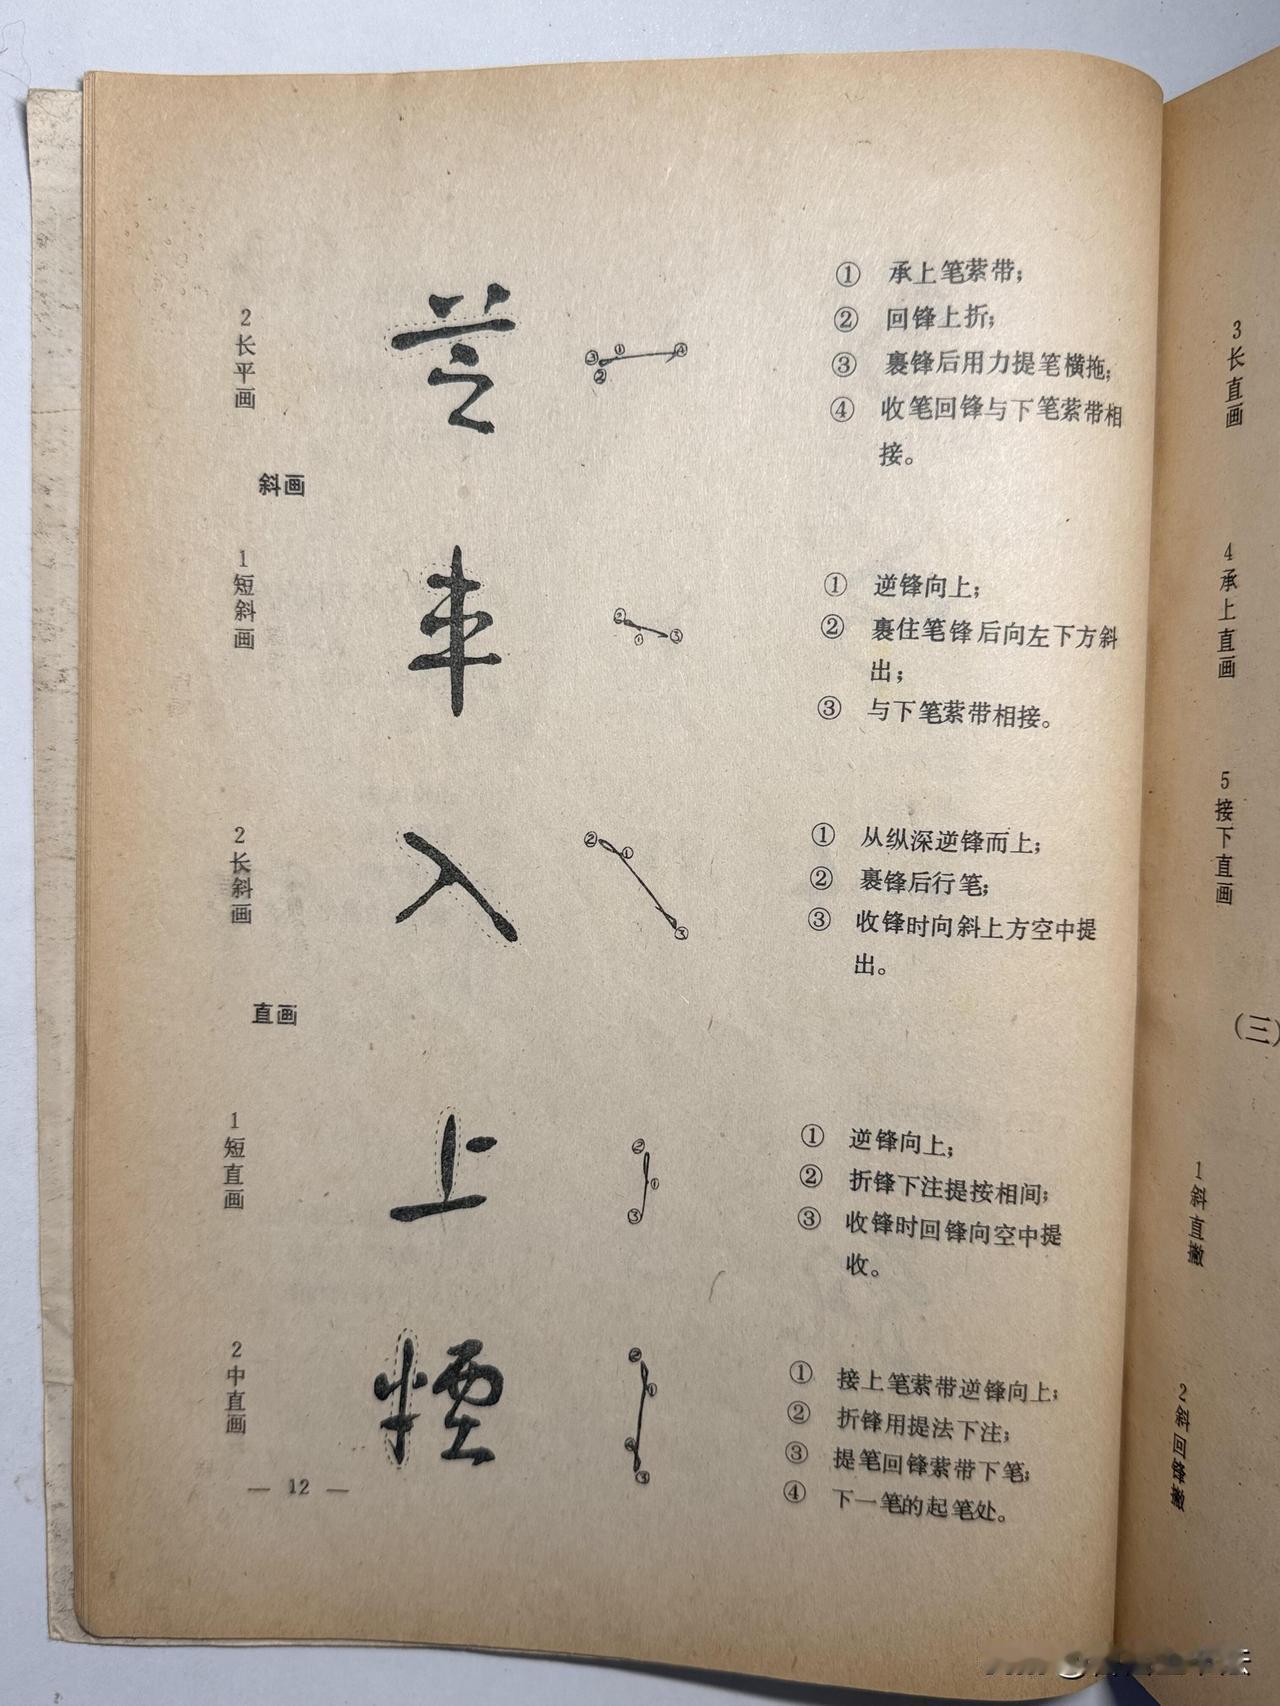 2长平画
① 承上笔萦带；
② 回锋上折；
③ 裹锋后用力提笔横拖；
④ 收笔回锋与下笔萦带相
接。
③ ① ④
②
斜画
1短斜画
① 逆锋向上；
② 裹住笔锋后向左下方斜
出；
③ 与下笔萦带相接。
② ① ③
2长斜画
入
① 从纵深逆锋而上；
② 裹锋后行笔；
③ 收锋时向斜上方空中提
出。
② ① ③
直画
1短直画
上
① 逆锋向上；
② 折锋下注提按相间；
③ 收锋时回锋向空中提
收。
② ① ③
2中直画
① 接上笔萦带逆锋向上；
② 折锋用提法下注；
③ 提笔回锋萦带下笔；
④ 下一笔的起笔处。
② ① ④ ③
— 12 —
3长直画
4承上直画
5接下直画
(三)
1斜直撇
2斜回锋撇